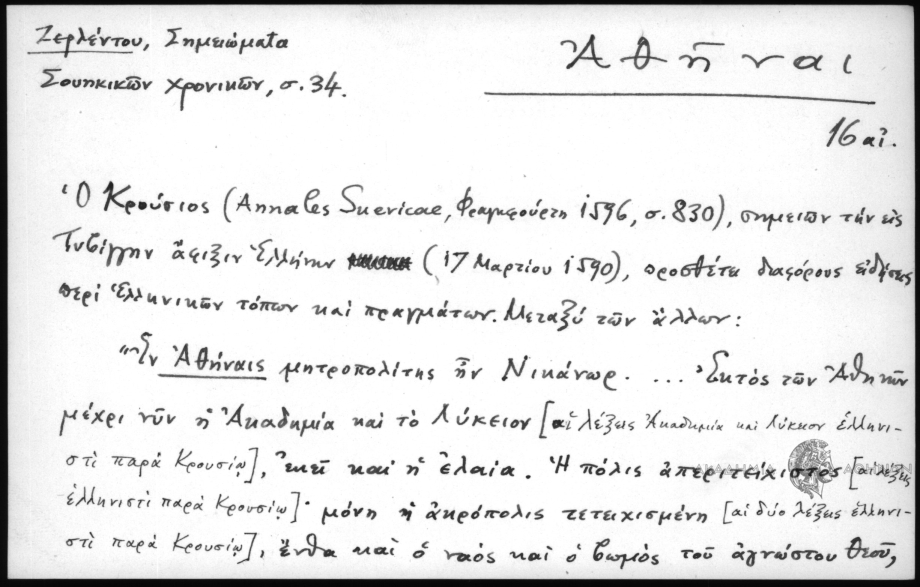 Ζερλέντου, Σημειώματα
Σουηκικῶν χρονικῶν, σ. 34.
Ἀθῆναι
16 αἰ.
Ὁ Κρούσιος (Annales Suevicae, Φραγκφούρτη 1596, σ. 830), σημειῶν τήν εἰς
Τυβίγγην ἄφιξιν Ἑλλήνων (17 Μαρτίου 1590), προσθέτει διαφόρους εἰδήσεις
περί ἑλληνικῶν τόπων καί πραγμάτων. Μεταξύ τῶν ἄλλων:
"Ἐν Ἀθήναις μητροπολίτης ἦν Νικάνωρ. ... Ἐκτός τῶν Ἀθηνῶν
μέχρι νῦν ἡ Ἀκαδημία καί τό Λύκειον [αἱ λέξεις Ἀκαδημία καί Λύκειον ἑλληνι-
στί παρά Κρουσίῳ], ἐκεῖ καί ἡ ἐλαία. Ἡ πόλις ἀπεριτείχιστος [αἱ λέξεις
ἑλληνιστί παρά Κρουσίῳ]· μόνη ἡ ἀκρόπολις τετειχισμένη [αἱ δύο λέξεις ἑλληνι-
στί παρά Κρουσίῳ], ἔνθα καί ὁ ναός καί ὁ βωμός τοῦ ἀγνώστου Θεοῦ,
ΑΚΑΔΗΜΙΑ ΑΘΗΝΩΝ